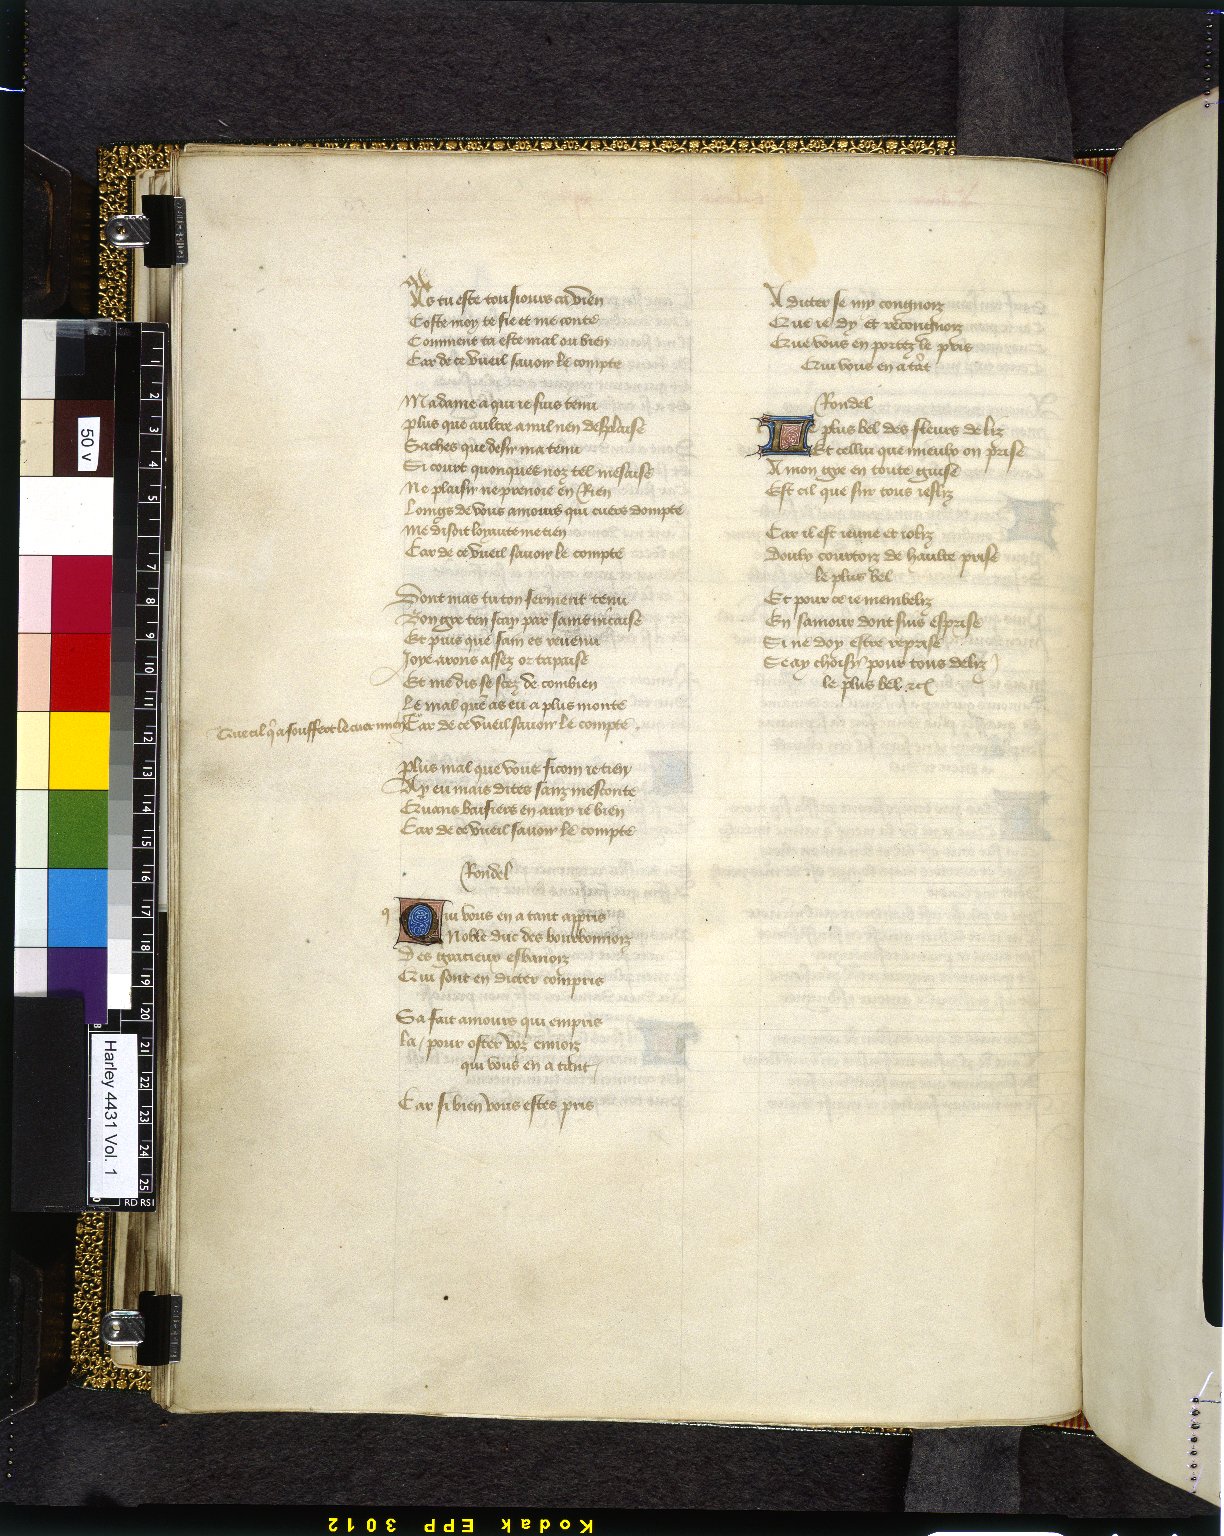 As tu este tousiours ca vien
Coste moy te sie et me conte
Comment ta este mal ou bien
Car de ce vueil sauoir le compte
Madame a qui ie suis tenu
plus que aultre a mil rien desplaise
Saches que desir ma tenu
Si court quonques noz tel mesaise
Ne plaisir ne prenoie en Rien
Loings de vous amours qui cuers dompte
me disoit loyaute me tien
Car de ce vueil sauoir le compte
Dont mas tu ton serment tenu
Bon gre ten scay par saint nicaise
Et puis que sain es reuenu
Joye arons assez or tapaise
Et me dis se scez de combien
Le mal que as eu a plus monte
Que cil q̃ a souffert le cuer mien
Car de ce vueil sauoir le compte
plus mal que vous sicom retien
Ay eu mais dites sanz mesconte
Quans baisiers en aray ie bien
Car de ce vueil sauoir le compte
Rondel
Qui vous en a tant appris
Noble duc des bourbonnoiz
Des gracieux esbanoiz
Qui sont en dicter compris
Sa fait amours qui empris
la / pour oster voz ennoiz
qui vous en a tant /
Car si bien vous estes pris
A dicter se my congnoiz
Que ie dy et recongnoiz
Que vous en portez le pris
Qui vous en a tãt
Rondel
Le plus bel des fleurs de liz
Et cellui que mieulx on prise
A mon gre en toute guise
Est cil que sur tous esliz
Car il est ieune et ioliz
Doulx courtoiz de haulte prise
le plus bel
Et pour ce ie membeliz
En samour dont suis esprise
Si ne doy estre reprise
Se ay choisy pour tous deliz
le plus bel ⁊c̃
50 v
Harley 4431 Vol. 1
1
2
3
4
5
6
7
8
9
10
11
12
13
14
15
16
17
18
19
20
21
22
23
24
25
RD RSI
Kodak EPP 3012